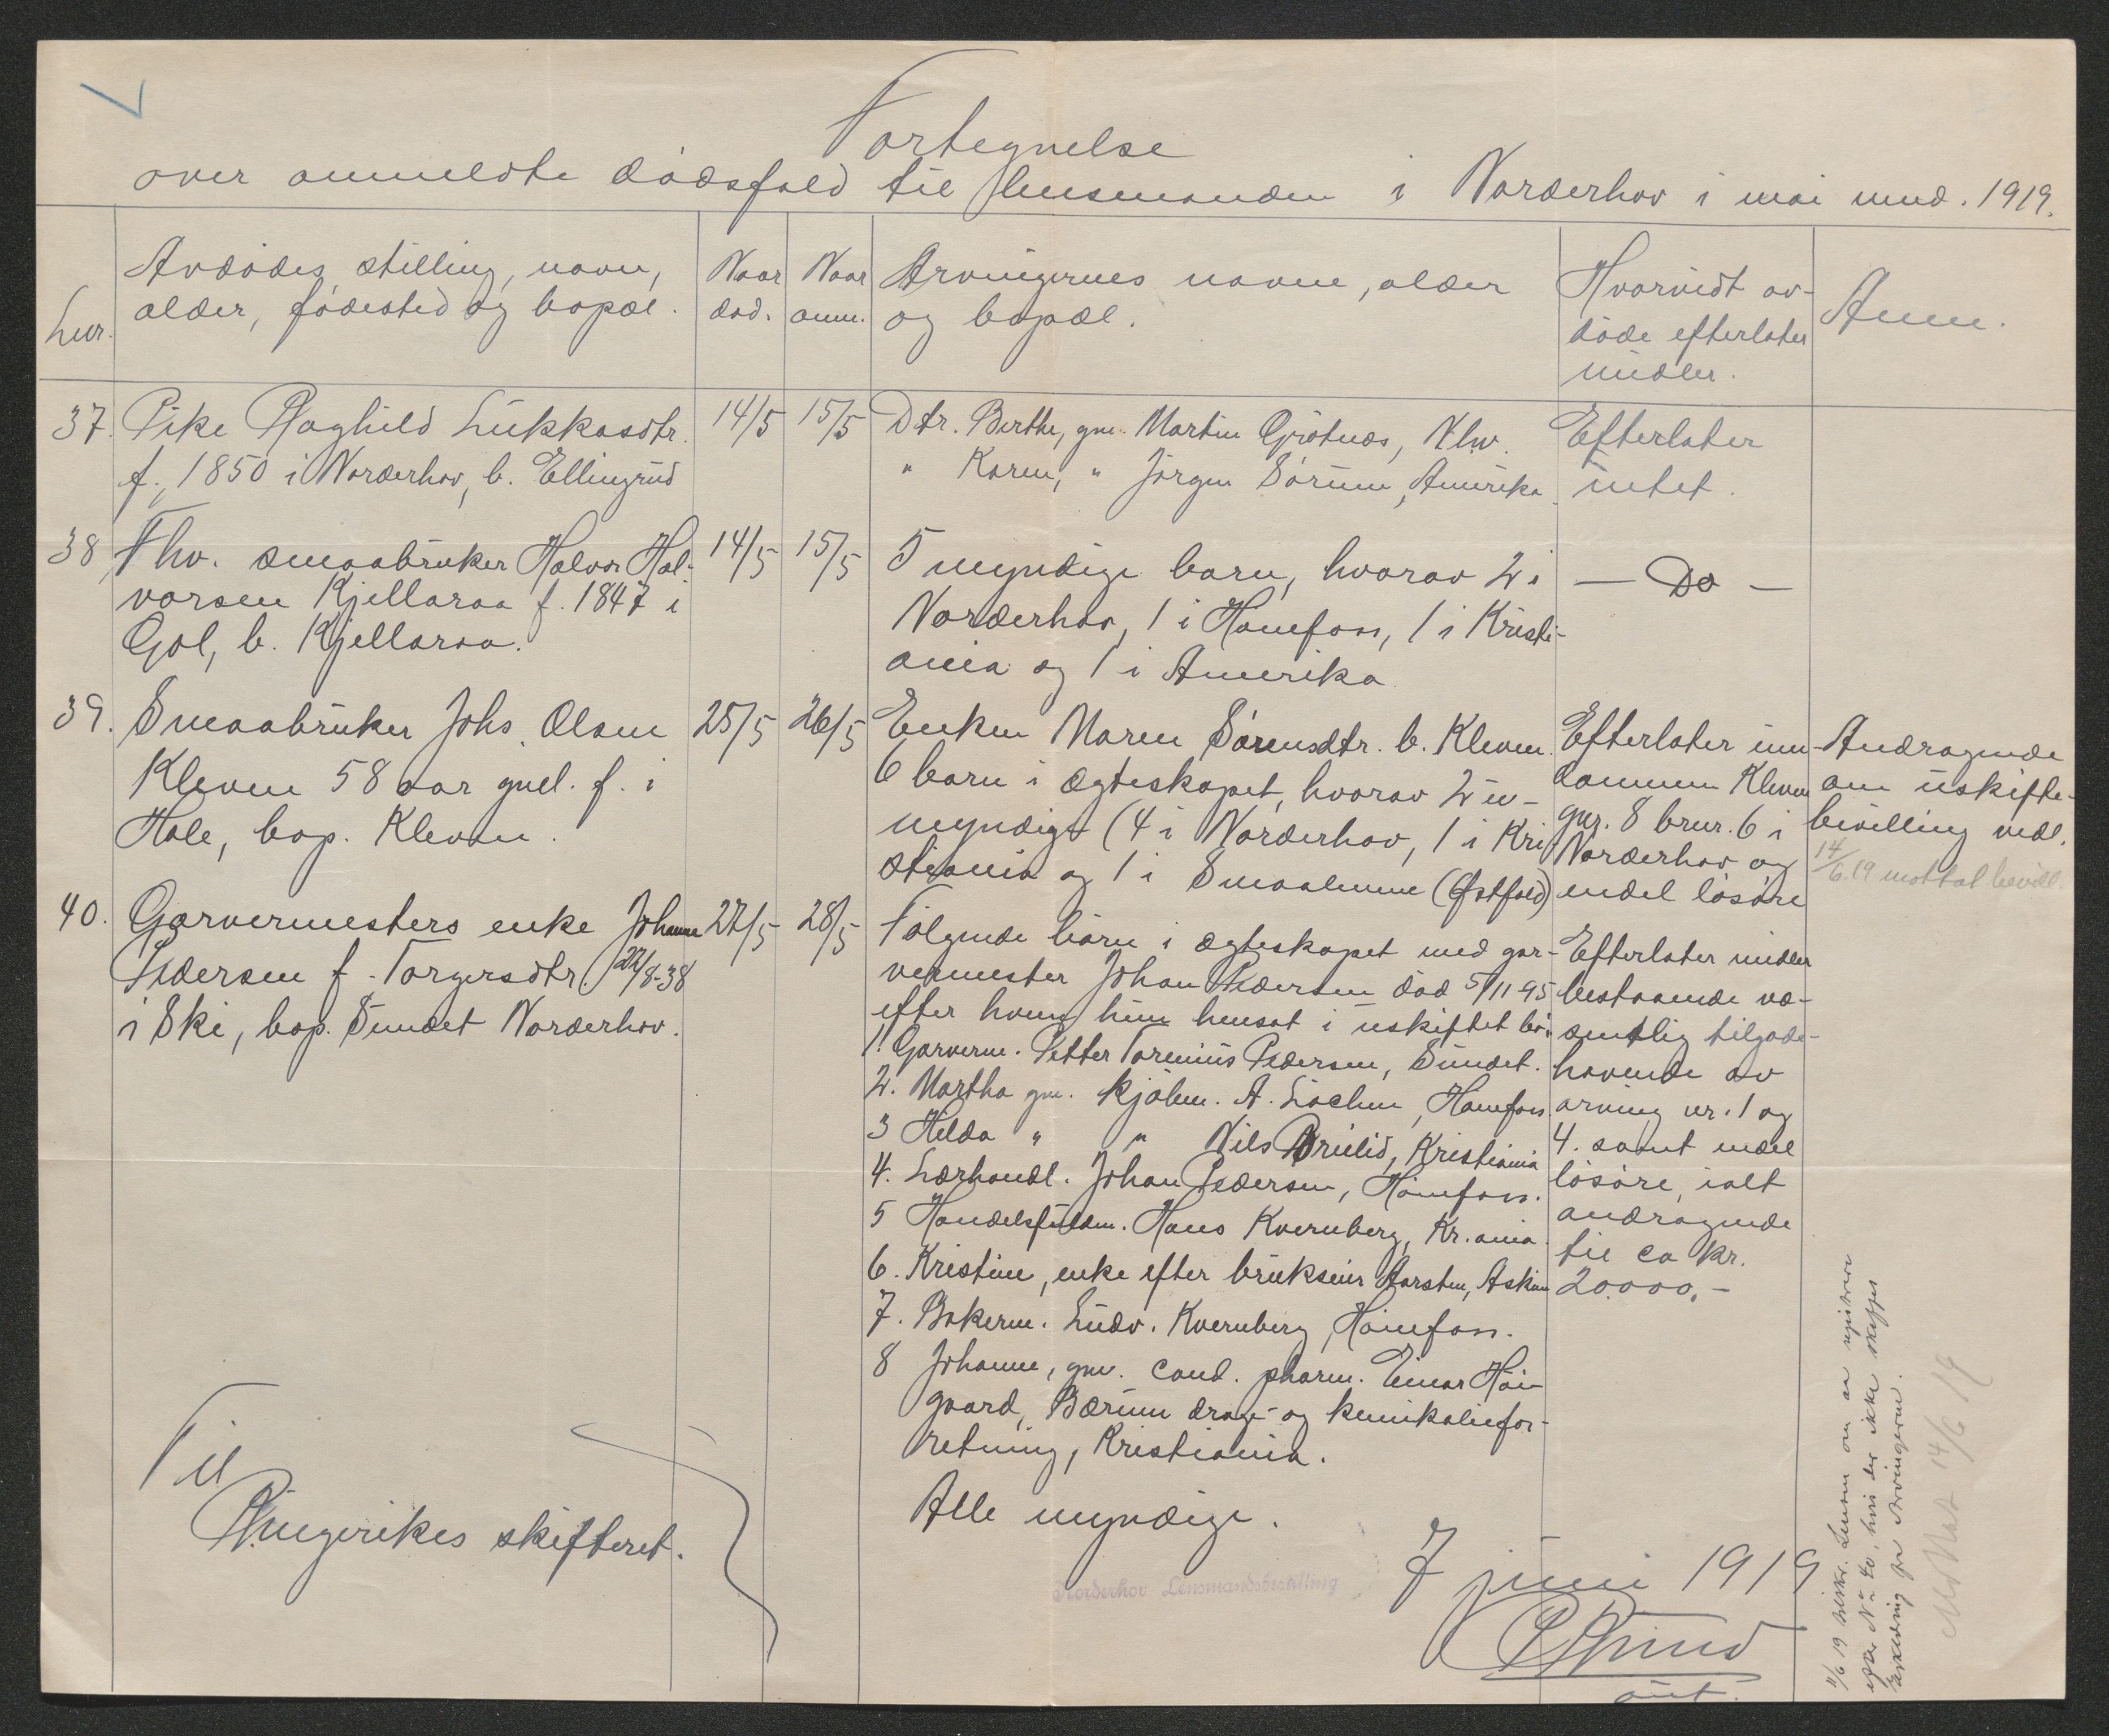 Fortegnelse
over anmeldte dødsfald til lensmanden i Norderhov i mai mnd. 1919.
Lnr.
Avdødes stilling, navn,
alder, fødested og bopæl.
Naar
død.
Naar
anm.
Arvingernes navne, alder
og bopæl.
Hvorvidt av-
døde efterlater
midler.
Anm.
37. Pike Raghild Lukkasdtr.
f. 1850 i Norderhov, b. Ellingrud
14/5
15/5
Dtr. Berthe, gm. Martin Gjøtnæs, Nhv.
" Karen, " Jørgen Sørum, Amerika
Efterlater
intet.
38 Fhv. smaabruker Halvor Hal-
vorsen Kjellaraa f. 1847 i
Gol, b. Kjellaraa.
14/5
15/5
5 myndige barn, hvorav 2 i
Norderhov, 1 i Hønefoss, 1 i Kristi-
ania og 1 i Amerika
— Do —
39. Smaabruker Johs. Olsen
Kleven 58 aar gml. f. i
Hole, bop. Kleven.
25/5
26/5
Enken Maren Sørensdtr. b. Kleven.
6 barn i ægteskapet, hvorav 2 u-
myndige (4 i Norderhov, 1 i Kri
stiania og 1 i Smaalenene (Østfold)
Efterlater eien-
dommen Kleven
gnr. 8 brnr. 6 i
Norderhov og
endel løsøre
Andragende
om uskifte-
bevilling vedl.
14/6.19 mottat bevill.
40. Garvermesters enke Johanne
Pedersen f. Torgersdtr. 22/8-38
i Ski, bop. Sundet Norderhov.
27/5
28/5
Følgende børn i ægteskapet med gar-
vermester Johan Pedersen død 5/11 95
efter hvem hun hensat i uskiftet bo:
1. Garverm. Petter Torenius Pedersen, Sundet.
2. Martha gm. kjøbm. A. Løchen, Hønefoss.
3 Hilda " " Nils Brulid, Kristiania
4. Lærhandl. Johan Pedersen, Hønefoss.
5 Handelsfuldm. Hans Kvernberg, Kr.ania.
6. Kristine, enke efter brukseier Aarsten, Askim
7. Bakerm. Ludv. Kvernberg, Hønefoss.
8 Johanne, gm. cand. pharm. Einar Høi-
gaard, Bærum droge- og kemikaliefor-
retning, Kristiania.
Alle myndige.
Efterlater midler
bestaaende væ-
sentlig tilgode-
havende av
arving nr. 1 og
4. samt endel
løsøre, ialt
andragende
til ca kr.
20.000,-
Til
Ringerikes skifteret.
Norderhov Lensmandsbestilling
7 juni 1919
aut.
11/6 19 tilskr. Lensm om at registrere
efter No 40, hvis der ikke skaffes
erklæring fra Arvingerne.
Mottat 14/6 19